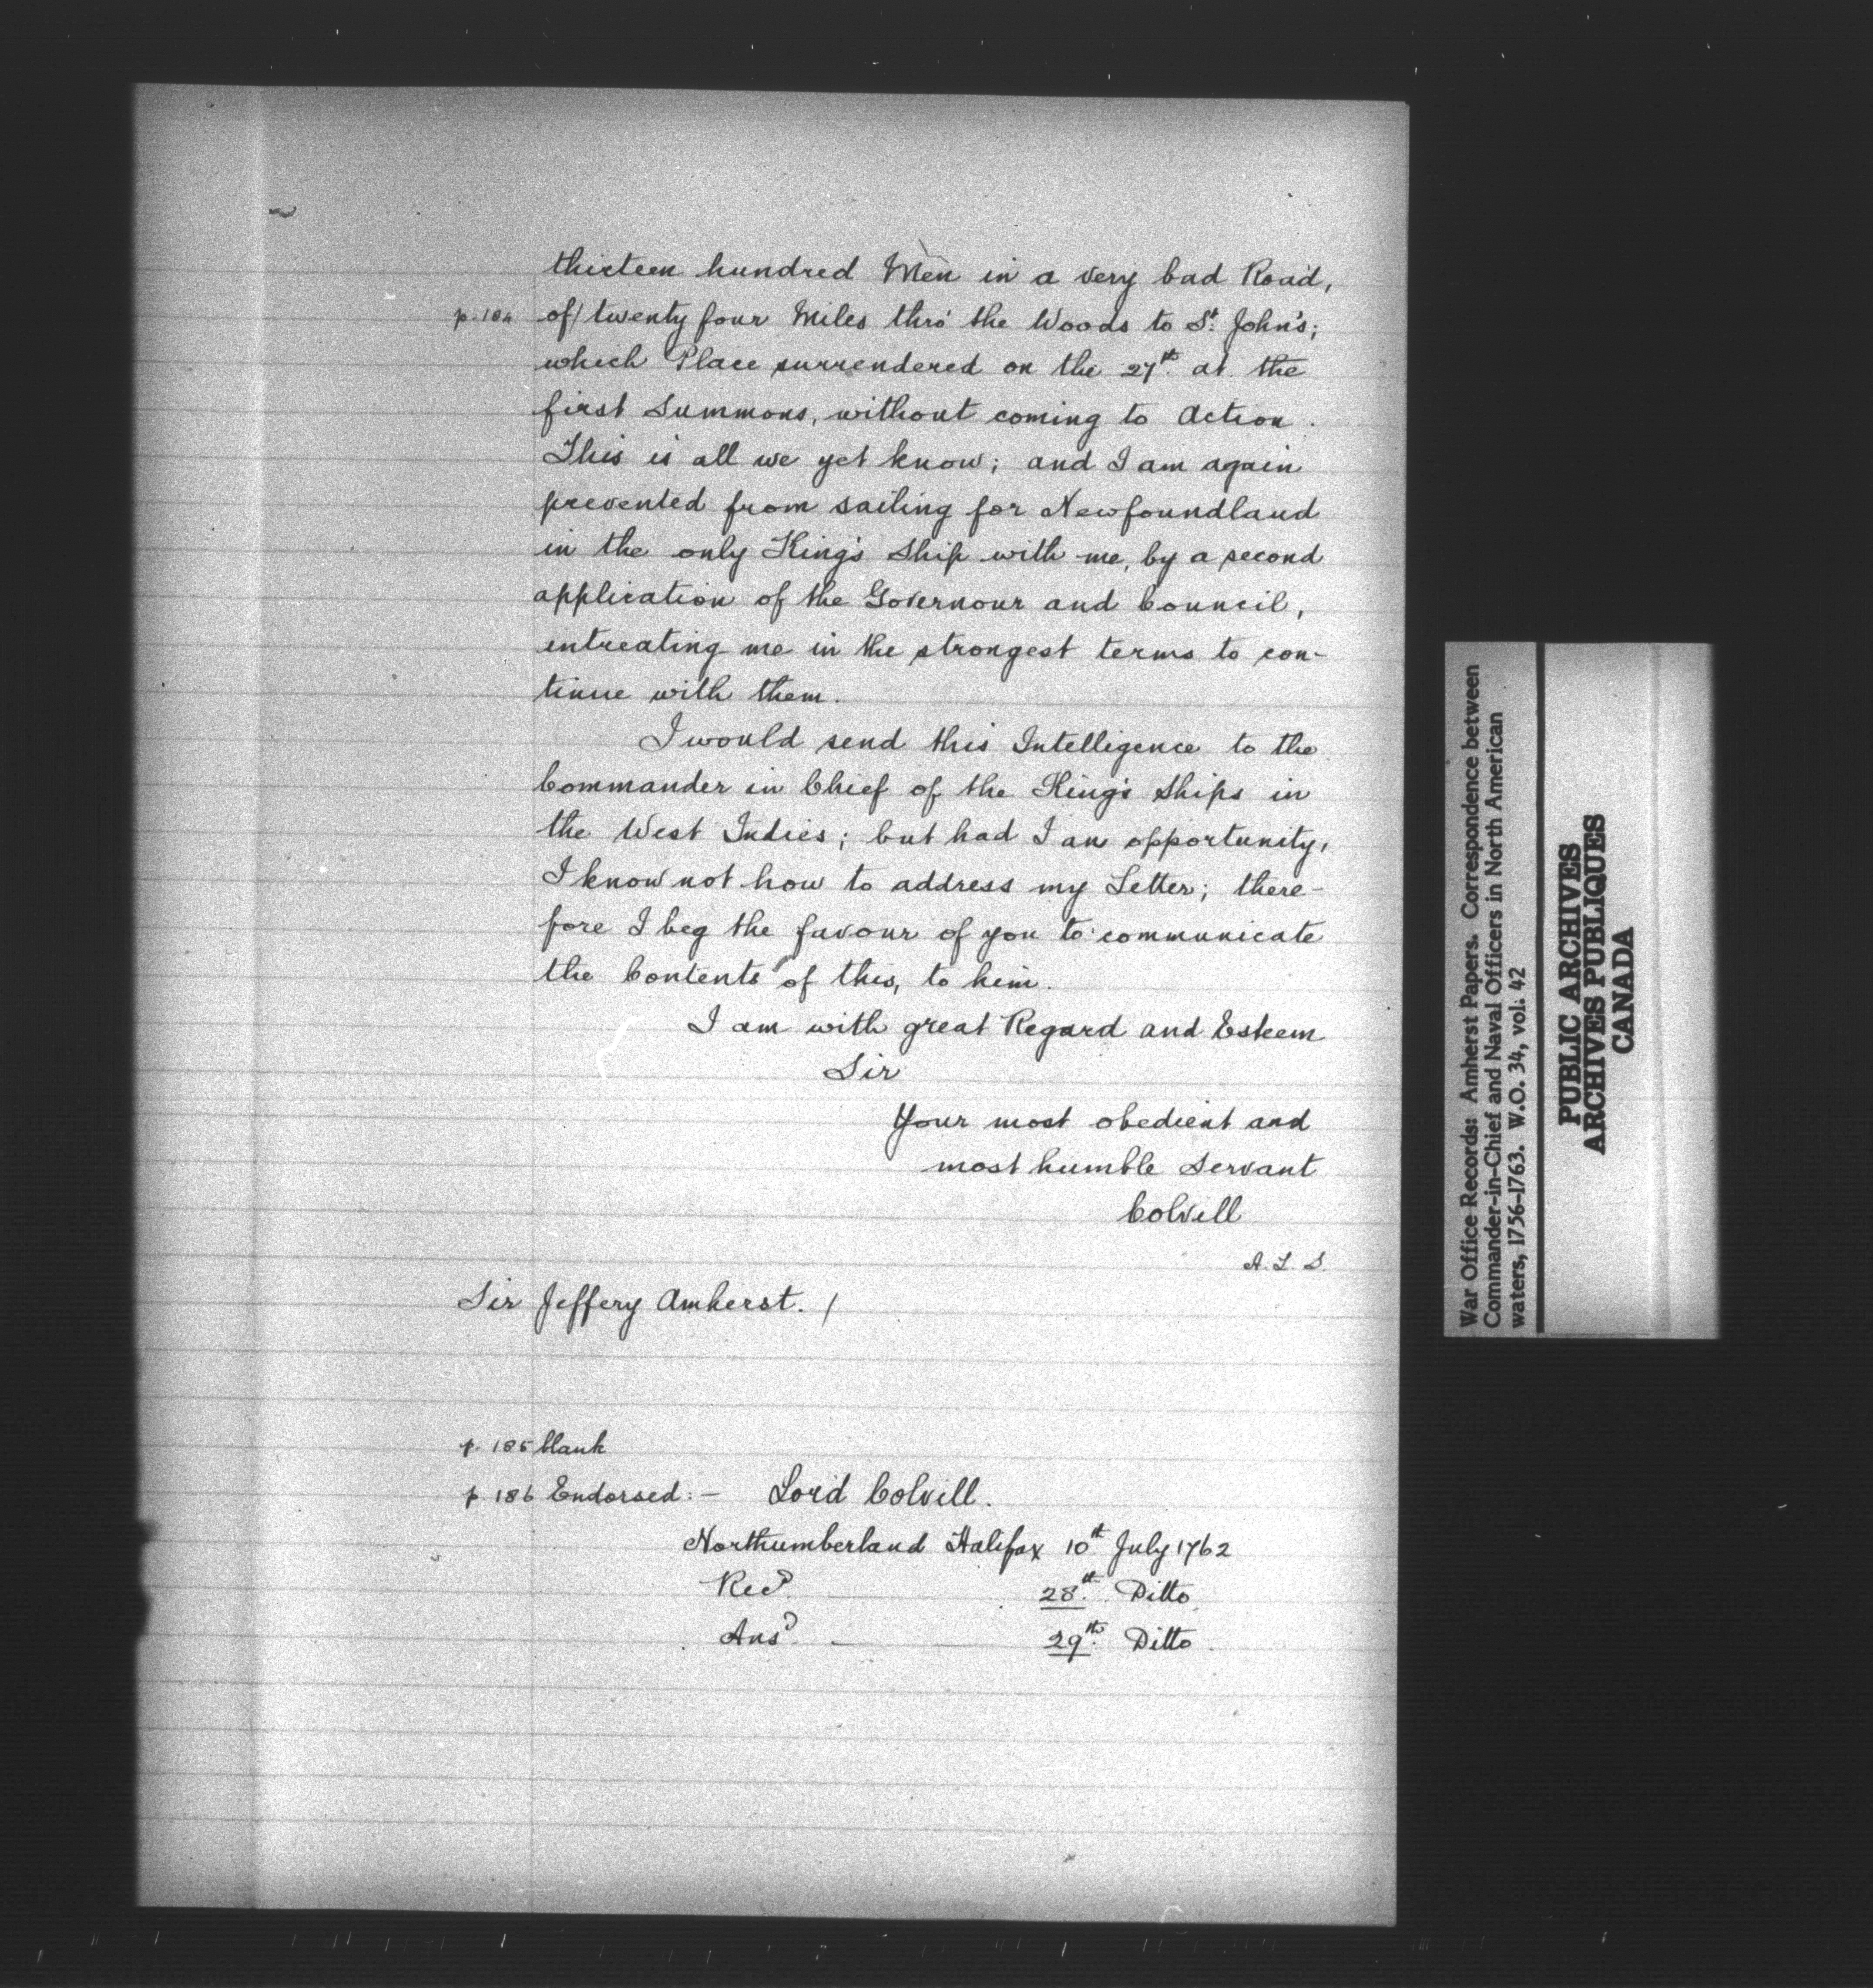 thirteen hundred Men in a very bad Road,
p. 184 of/ twenty four Miles thro' the Woods to St. John's;
which Place surrendered on the 27th. at the
first Summons, without coming to Action.
This is all we yet know; and I am again
prevented from sailing for Newfoundland
in the only King's Ship with me, by a second
application of the Governour and Council,
entreating me in the strongest terms to con-
tinue with them.
I would send this Intelligence to the
Commander in Chief of the King's Ships in
the West Indies; but had I an opportunity,
I know not how to address my Letter; there-
fore I beg the favour of you to communicate
the Contents of this, to him.
I am with great Regard and Esteem
Sir
Your most obedient and
most humble Servant
Colvill
A. L. S.
Sir Jeffery Amherst. /
p. 185 blank
p. 186 Endorsed:- Lord Colvill.
Northumberland Halifax 10th July 1762
Recd. 28th. Ditto
Ansd. — 29th. Ditto
War Office Records: Amherst Papers. Correspondence between
Commander-in-Chief and Naval Officers in North American
waters, 1756-1763. W.O. 34, vol. 42
PUBLIC ARCHIVES
ARCHIVES PUBLIQUES
CANADA